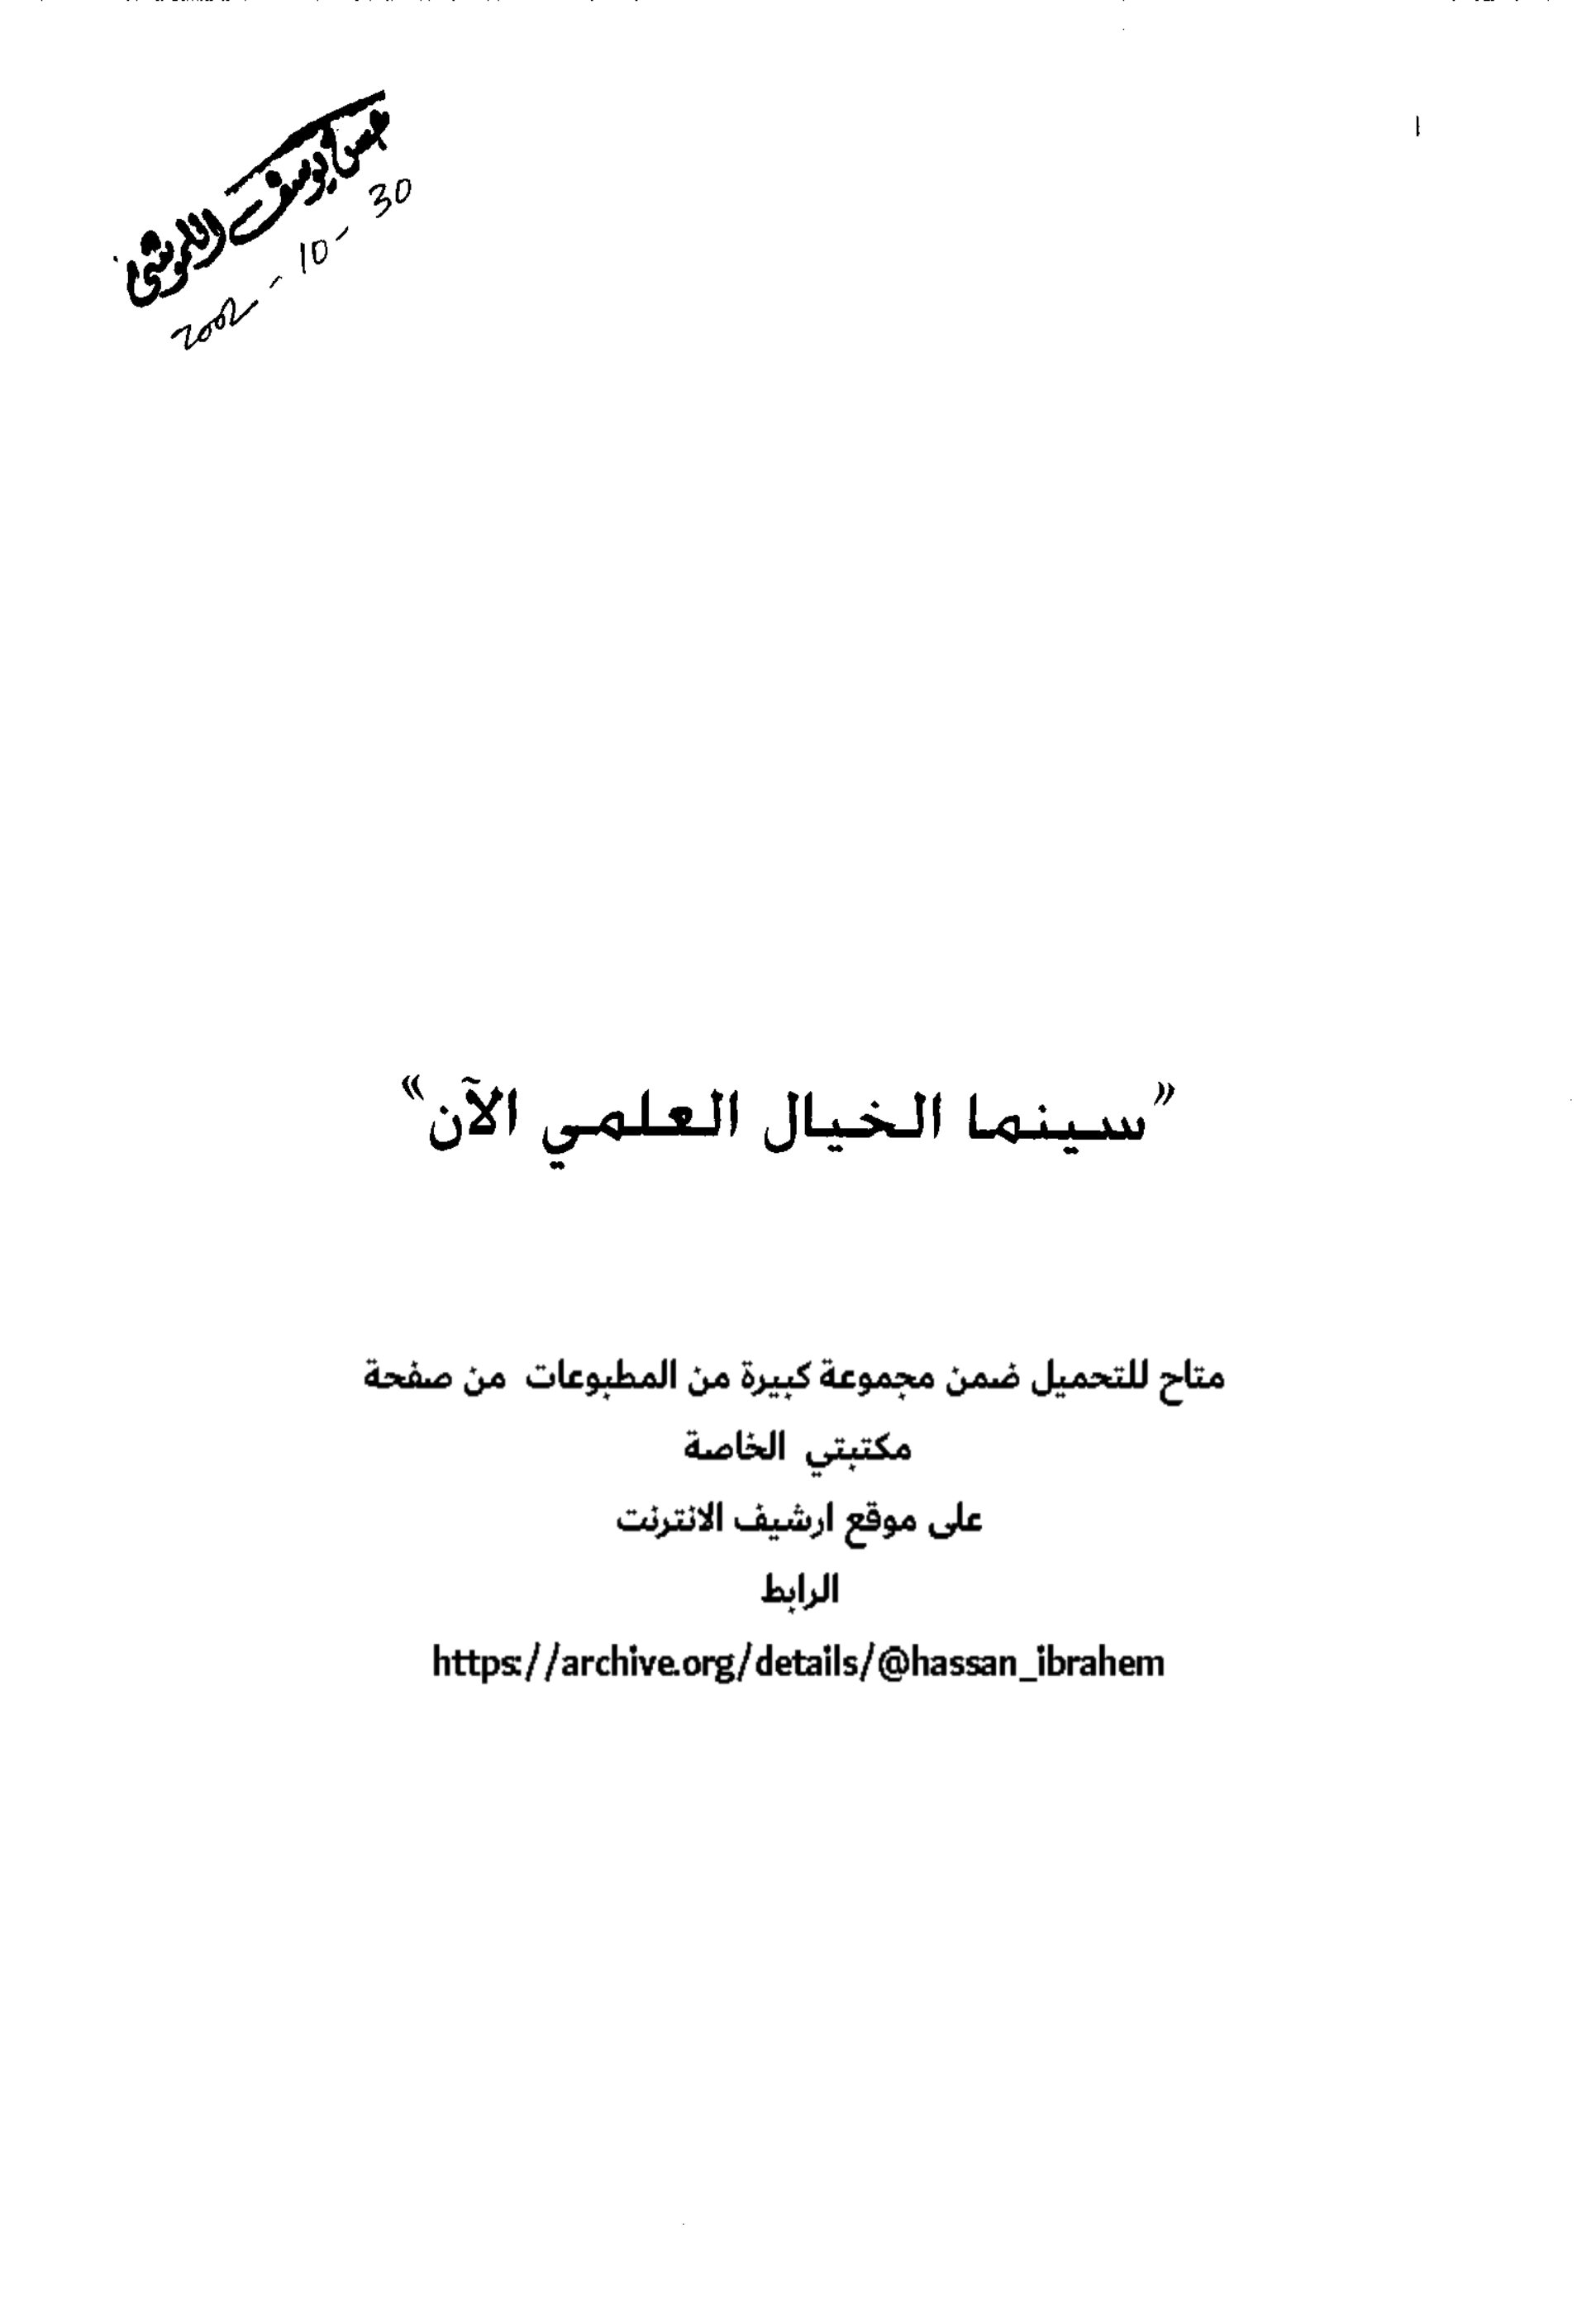 30 - 10 - 2002
”سينما الخيال العلمي الآن“
متاح للتحميل ضمن مجموعة كبيرة من المطبوعات من صفحة
مكتبتي الخاصة
على موقع ارشيف الانترنت
الرابط
https://archive.org/details/@hassan_ibrahem